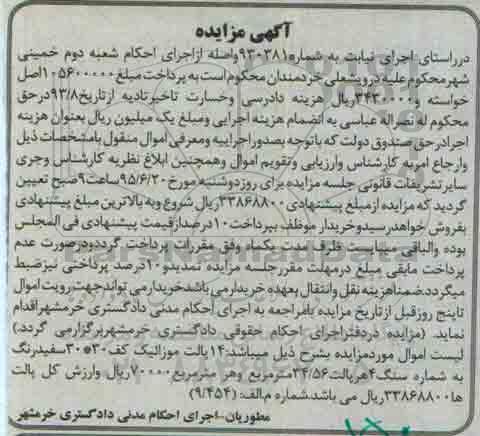 آگهی مزایده
درراستای اجرای نیابت به شماره۹۳۰۳۸۱واصله ازاجرای احکام شعبه دوم خمینی
شهرمحکوم علیه درویشعلی خردمندان محکوم است به پرداخت مبلغ۱۰۵۶۰۰۰۰۰اصل
خواسته و۳۴۳۰۰۰۰ریال هزینه دادرسی وخسارت تاخیرتادیه ازتاریخ۹۳/۸درحق
محکوم له نصراله عباسی به انضمام هزینه اجرایی ومبلغ یک میلیون ریال بعنوان هزینه
اجرادرحق صندوق دولت که باتوجه بصدوراجراییه ومعرفی اموال منقول بامشخصات ذیل
وارجاع امربه کارشناس وارزیابی وتقویم اموال وهمچنین ابلاغ نظریه کارشناس وجری
سایرتشریفات قانونی جلسه مزایده برای روزدوشنبه مورخ۹۵/۶/۲۰ساعت۹صبح تعیین
گردید که مزایده ازمبلغ پیشنهادی۳۳۸۶۸۸۰۰ریال شروع وبه بالاترین مبلغ پیشنهادی
بفروش خواهدرسیدوخریدار موظف بپرداخت۱۰درصدازقیمت پیشنهادی فی المجلس
بوده والباقی میبایست ظرف مدت یکماه وفق مقررات پرداخت گردددرصورت عدم
پرداخت مابقی مبلغ درمهلت مقررجلسه مزایده تمدیدو۱۰درصد پرداختی نیزضبط
میگرددضمناهزینه نقل وانتقال بعهده خریدارمی باشدخریدارمی تواندجهت رویت اموال
تاپنج روزقبل ازتاریخ مزایده بامراجعه به اجرای احکام مدنی دادگستری خرمشهراقدام
نماید. (مزایده دردفتراجرای احکام حقوقی دادگستری خرمشهربرگزارمی گردد.)
لیست اموال موردمزایده بشرح ذیل میباشد:۱۴پالت موزائیک کف۳۰*۳۰سفیدرنگ
به شماره سنگ۴هرپالت۳۴/۵۶مترمربع وهر مترمربع۷۰۰۰۰ریال وارزش کل پالت
ها۳۳۸۶۸۸۰۰ریال می باشد.شماره م.الف: (۹/۴۵۴)
مطوریان-اجرای احکام مدنی دادگستری خرمشهر
ParsNamadData